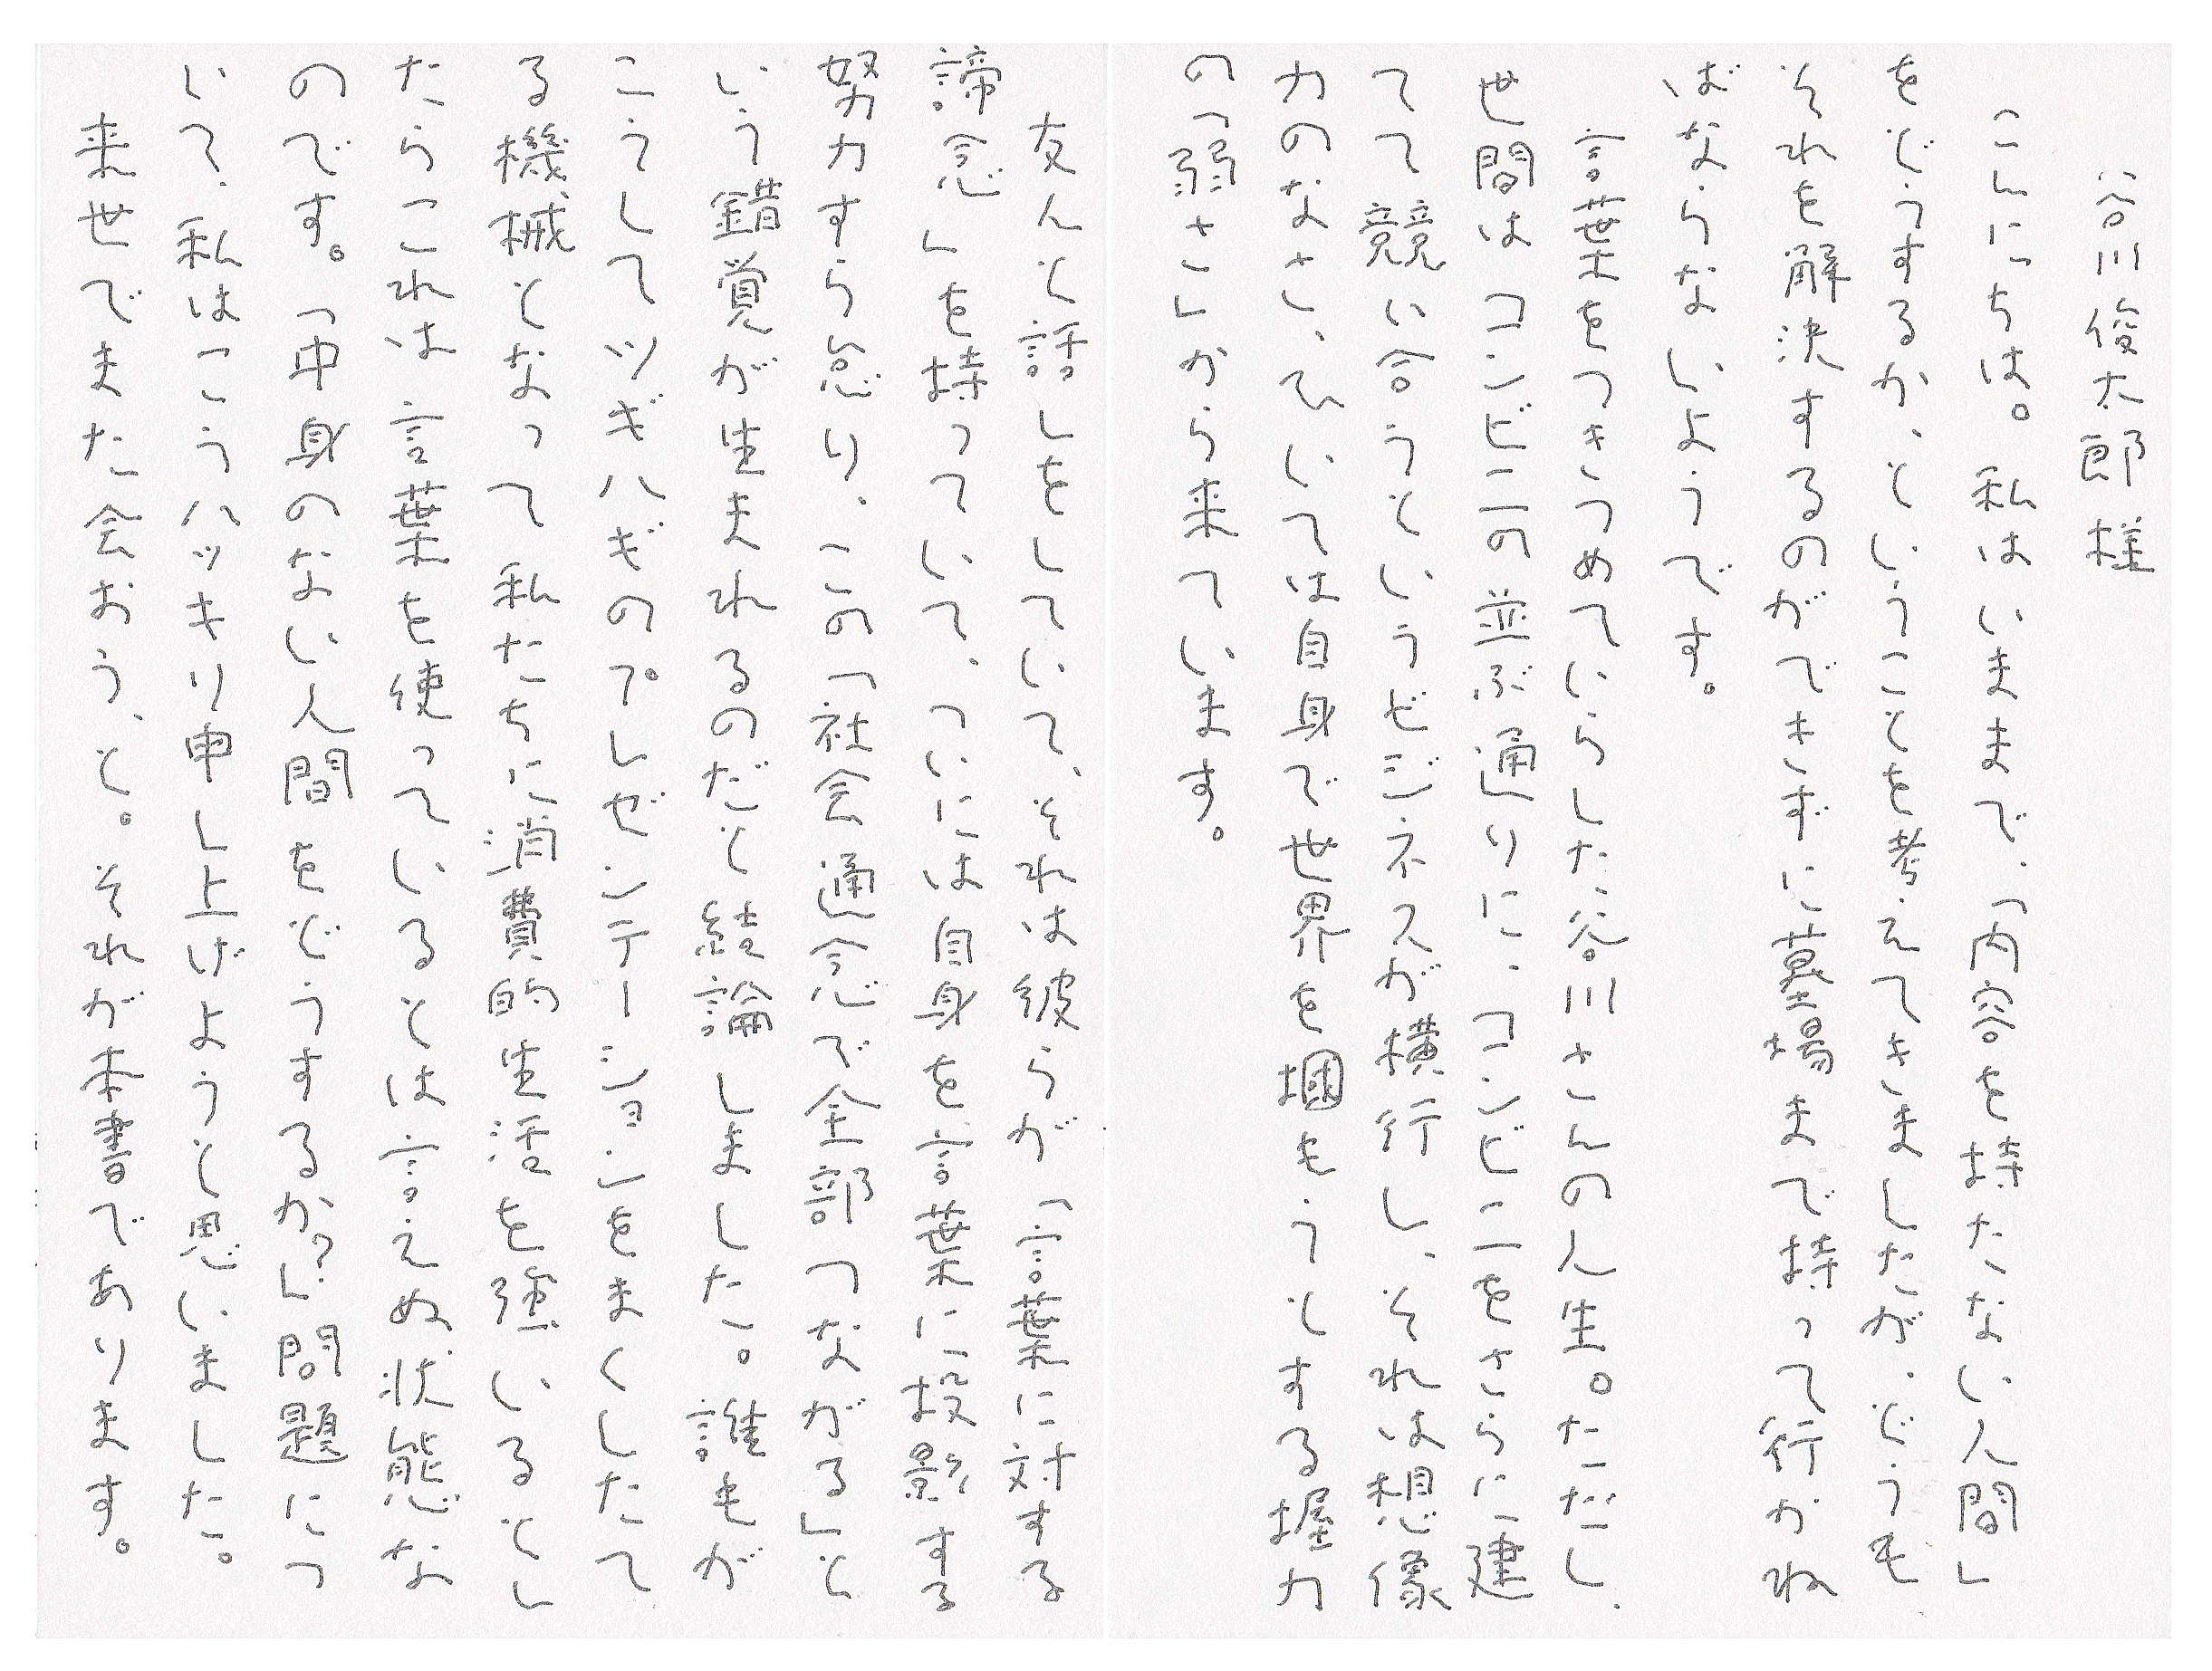 谷川俊太郎様
こんにちは。私はいままで、「内容を持たない人間」
をどうするか、ということを考えてきましたが、どうも
それを解決するのができずに墓場まで持って行かね
ばならないようです。
言葉をつきつめていらした谷川さんの人生。ただし、
世間はコンビニの並ぶ通りに、コンビニをさらに建
てて競い合うというビジネスが横行し、それは想像
力のなさ、ひいては自身で世界を掴もうとする握力
の「弱さ」から来ています。
友人と話しをしていて、それは彼らが「言葉に対する
諦念」を持っていて、ついには自身を言葉に投影する
努力すら怠り、この「社会通念で全部つながる」と
いう錯覚が生まれるのだと結論しました。誰もが
こうしてツギハギのプレゼンテーションをまくしたて
る機械となって私たちに消費的生活を強いるとし
たらこれは言葉を使っているとは言えぬ状態な
のです。「中身のない人間をどうするか?」問題につ
いて、私はこうハッキリ申し上げようと思いました。
来世でまた会おう、と。それが本書であります。